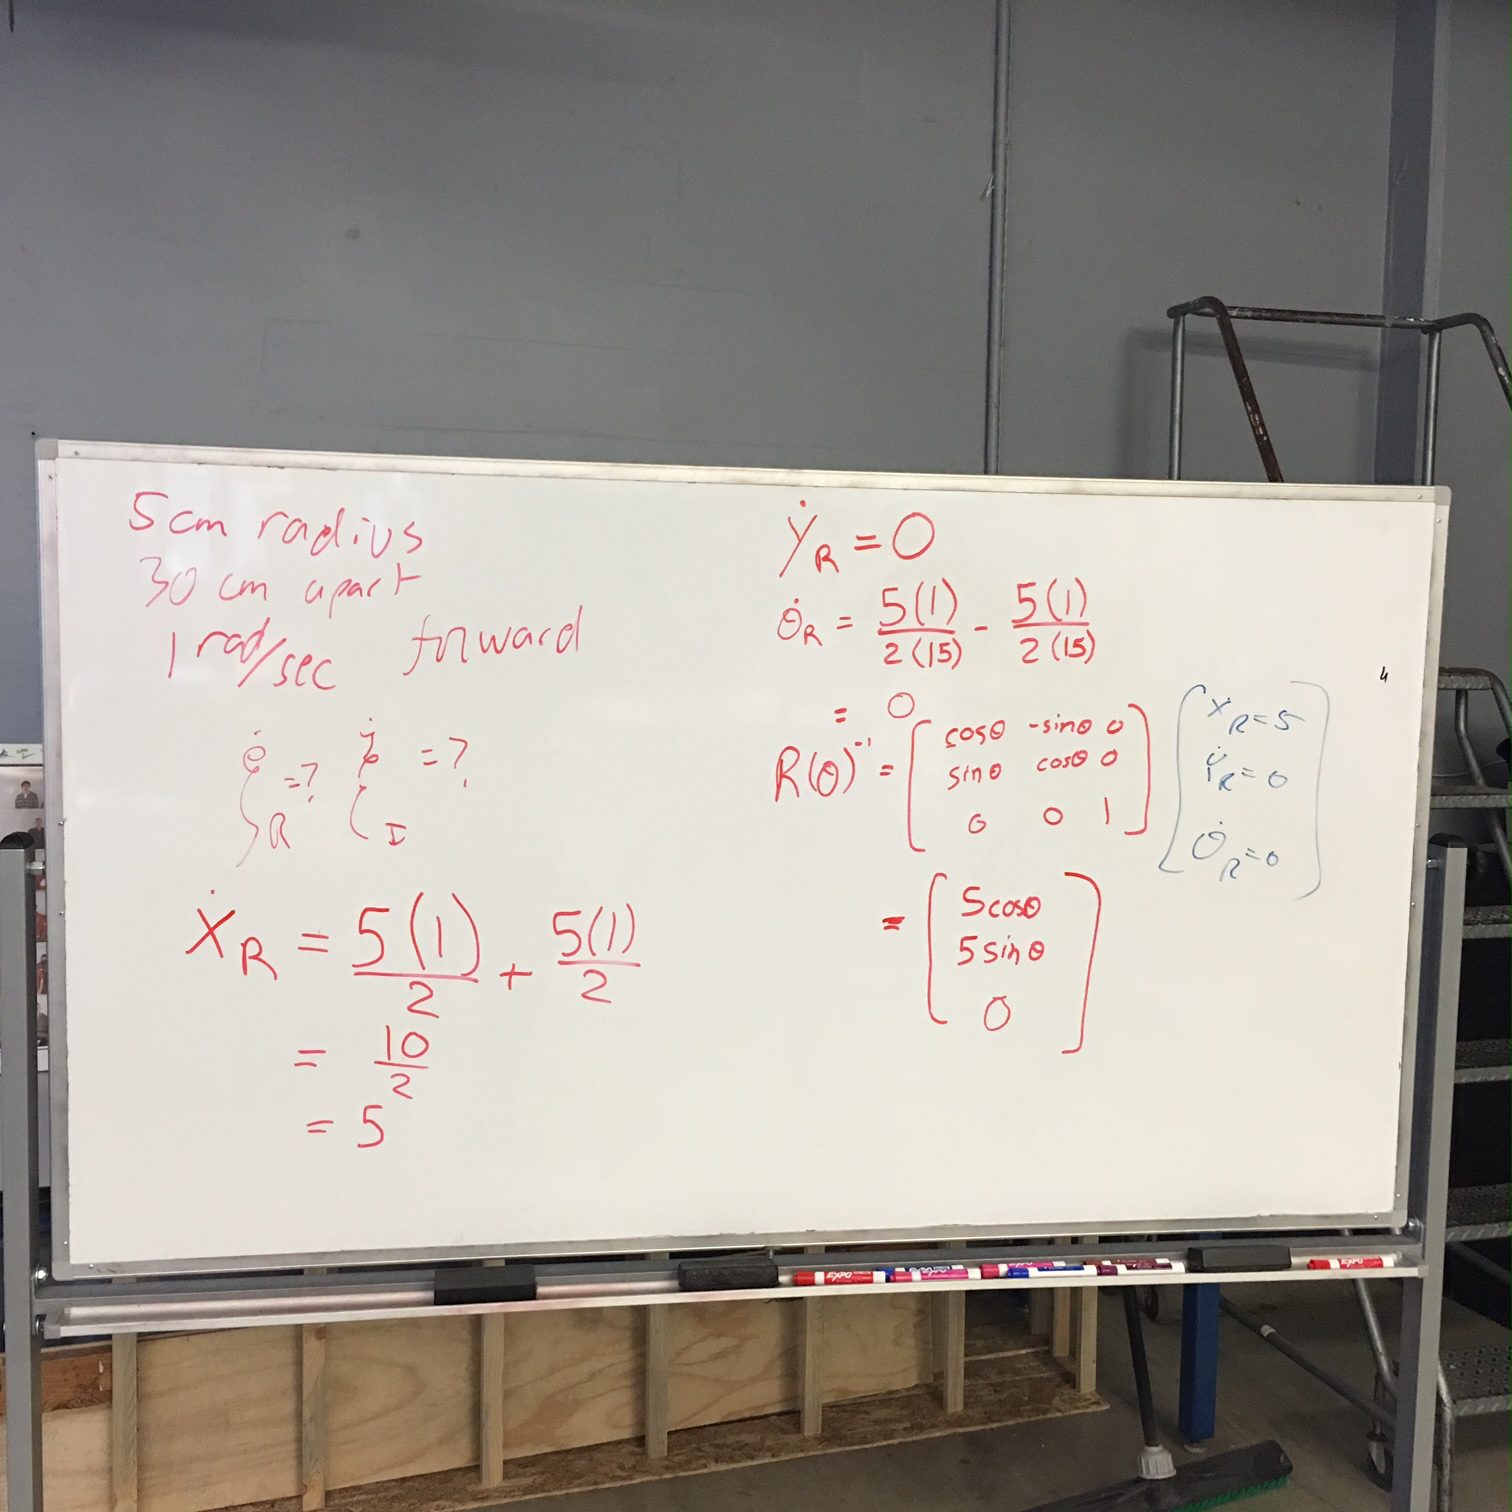 5cm radius
30 cm apart
1 rad/sec forward
ξ̇_R =? ξ̇_I =?
ẋ_R = 5(1)/2 + 5(1)/2
= 10/2
= 5
ẏ_R = 0
θ̇_R = 5(1)/2(15) - 5(1)/2(15)
= 0
R(θ)⁻¹ = [cosθ -sinθ 0
sinθ cosθ 0
0 0 1]
[ẋ_R=5
ẏ_R=0
θ̇_R=0]
= [5cosθ
5sinθ
0]
4
EXPO
EXPO
EXPO